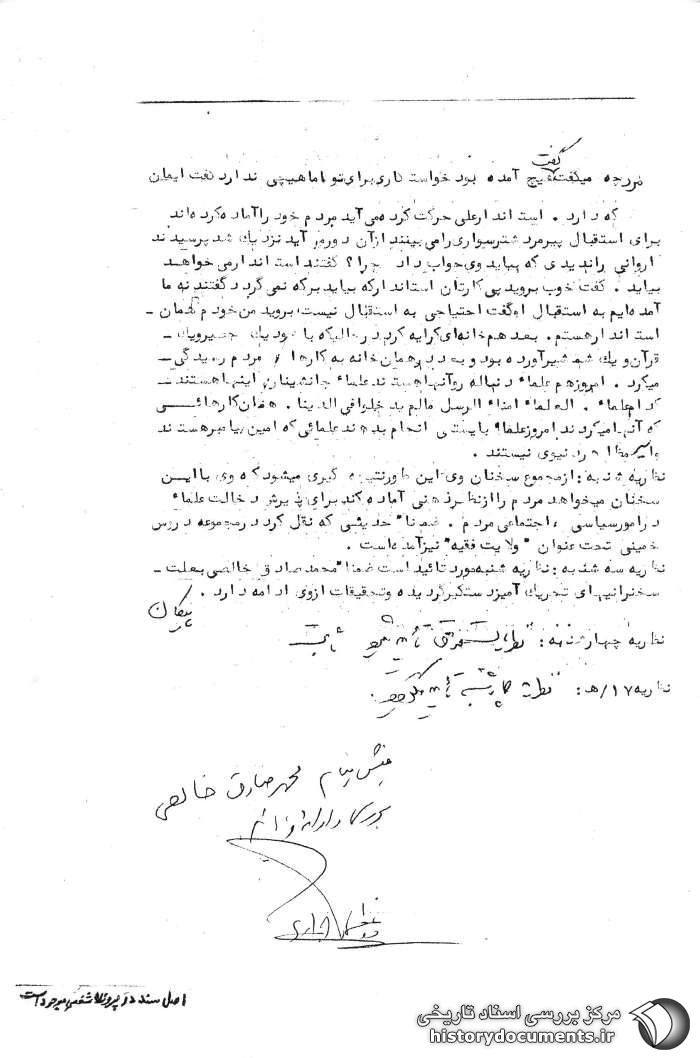 هرچه میگفت هیچ گفت آمده بود خواستگاری برای تو اما هیچی ندارد گفت ایمان
که دارد . استاندار علی حرکت کرد می‌آید مردم خود را آماده کرده‌اند
برای استقبال پیرمرد شترسواری را می بینند از آن دور می آید نزدیك شد پرسیدند
اروانی راندیدی که بیاید وی جواب داد چرا ؟ گفتند استاندار می خواهد
بیاید . گفت خوب بروید پی کارتان استاندار که بیاید برکه نمی گردد گفتند نه ما
آمده‌ایم به استقبال او گفت احتیاجی به استقبال نیست، بروید من خودم همان -
استاندار هستم . بعد هم خانه‌ای کرایه کرد در حالیکه با خود یك حصیر و یك -
قرآن و یك شمشیر آورده بود و بعد در همان خانه به کارهای مردم رسیدگی -
میکرد . امروز هم علماء دنباله رو آنها هستند علماء جانشینان اینها هستند -
کدام علماء . العلماء امناء الرسل مالم یدخلوا فی الدینا . همان کارهائی
که آنها میکردند امروز علماء بایستی انجام بدهند علمائی که امین پیامبر هستند
دنیوی نیستند .
نظریه شنبه : از مجموع سخنان وی این طور نتیجه گیری میشود که وی با این
سخنان میخواهد مردم را از نظر ذهنی آماده کند برای پذیرش دخالت علماء
در امور سیاسی ، اجتماعی مردم . ضمنا" حدیثی که نقل کرد در مجموعه دروس
خمینی تحت عنوان "ولایت فقیه" نیز آمده‌است .
نظریه سه شنبه : نظریه شنبه مورد تائید است ضمنا" محمد صادق خالصی بعلت -
سخنرانیهای تحریك آمیز دستگیر گردیده و تحقیقات از وی ادامه دارد .
پیکان
نظریه چهارشنبه :
نظریه ۱۷/ه :
محمد صادق خالصی
اصل سند در پرونده شخصی موجود است
مرکز بررسی اسناد تاریخی
historydocuments.ir